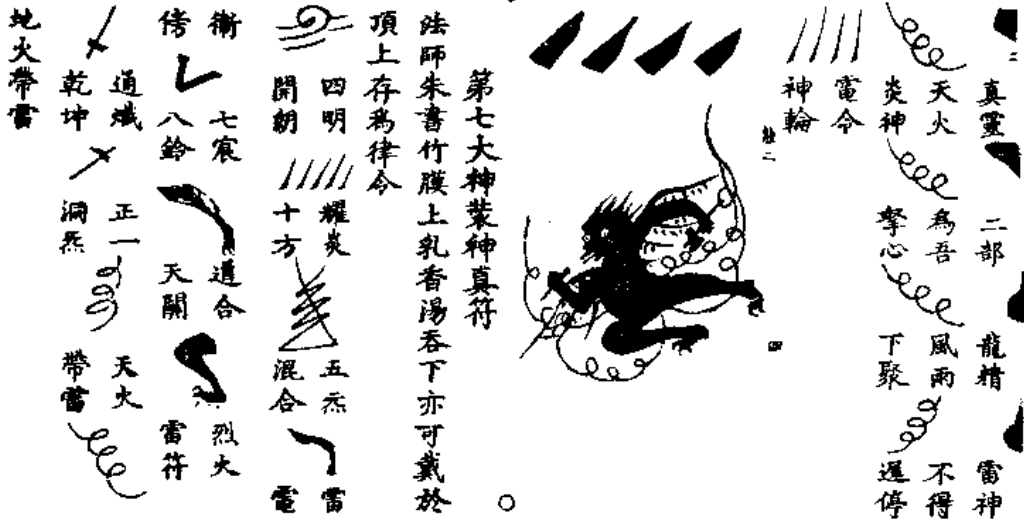 真靈
二部
龍精
雷神
天火炎神
為吾拏心
風雨下聚
不得遲停
電令神輪
四
第七大神裝神真符
法師朱書竹膜上乳香湯吞下亦可戴於
頂上存為律令
四明開朗
耀炎十方
五炁混合
雷電
衝傍
七宸八鈴
道合天關
烈火雷符
通熾乾坤
正一洞炁
天火帶雷
地火帶雷